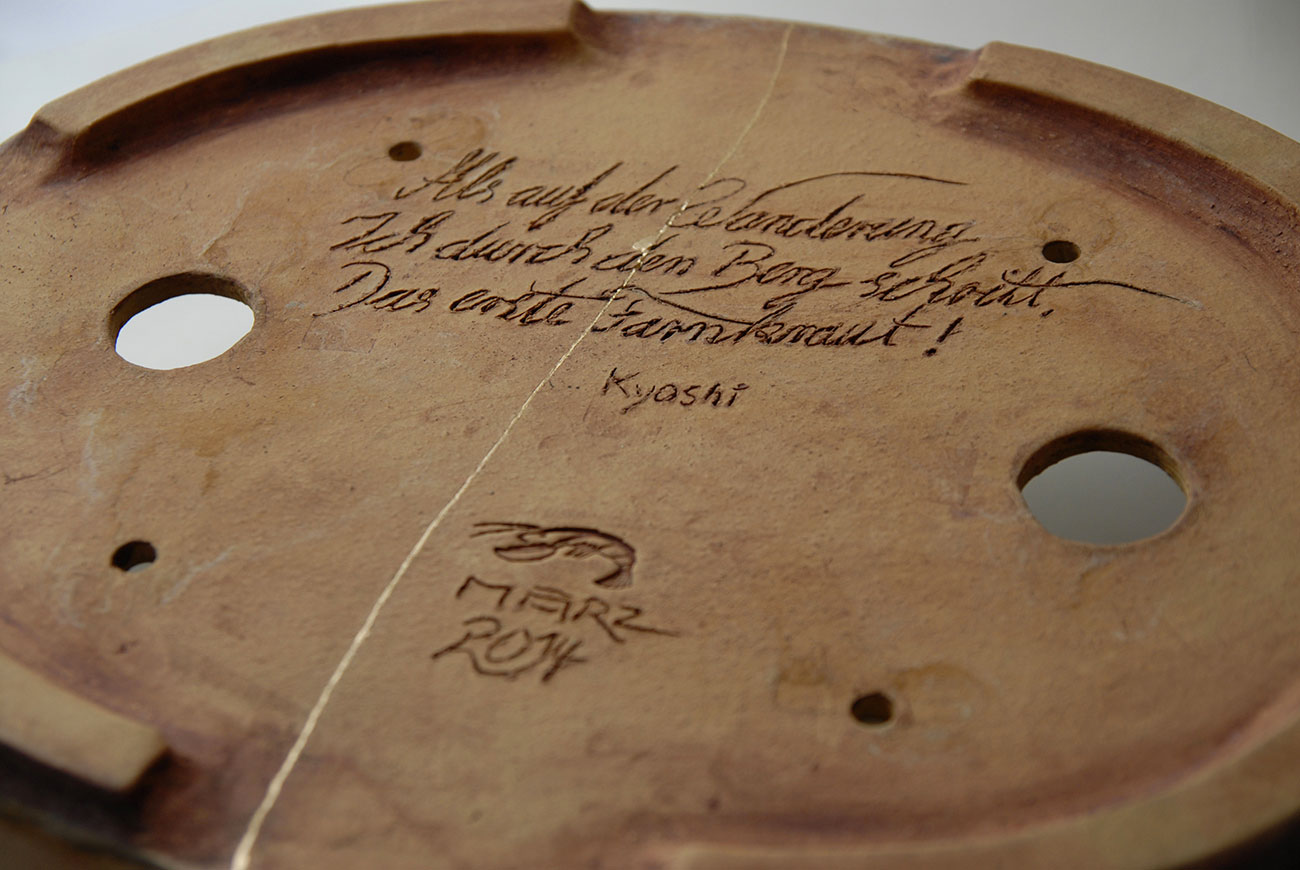 Als auf der Wanderung
Ich durch den Berg schritt,
Das erste Farnkraut!
Kyoshi
MÄRZ
2014